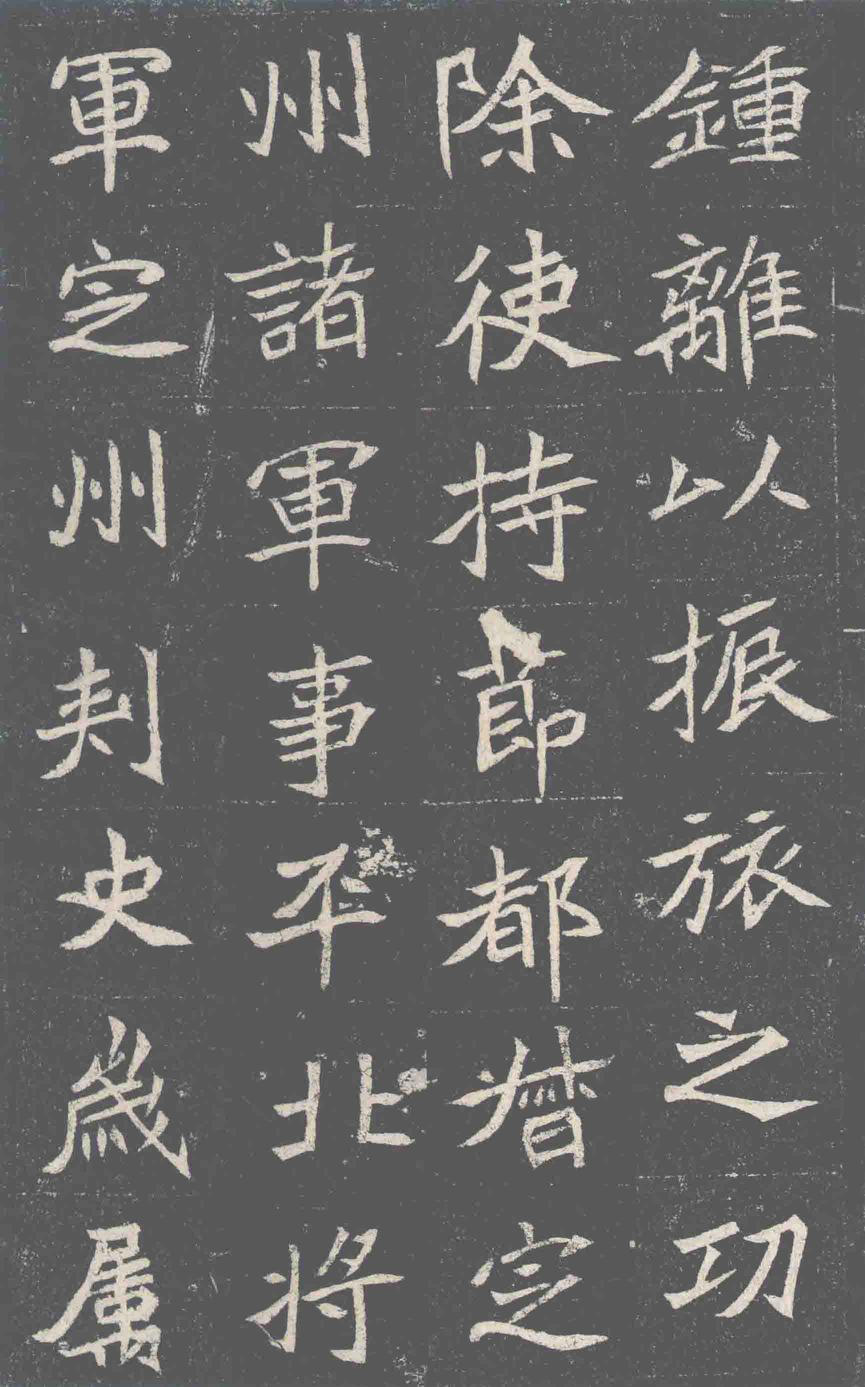 鍾離以振旅之功
除使持節都督定
州諸軍事平北將
軍定州刾史歲属